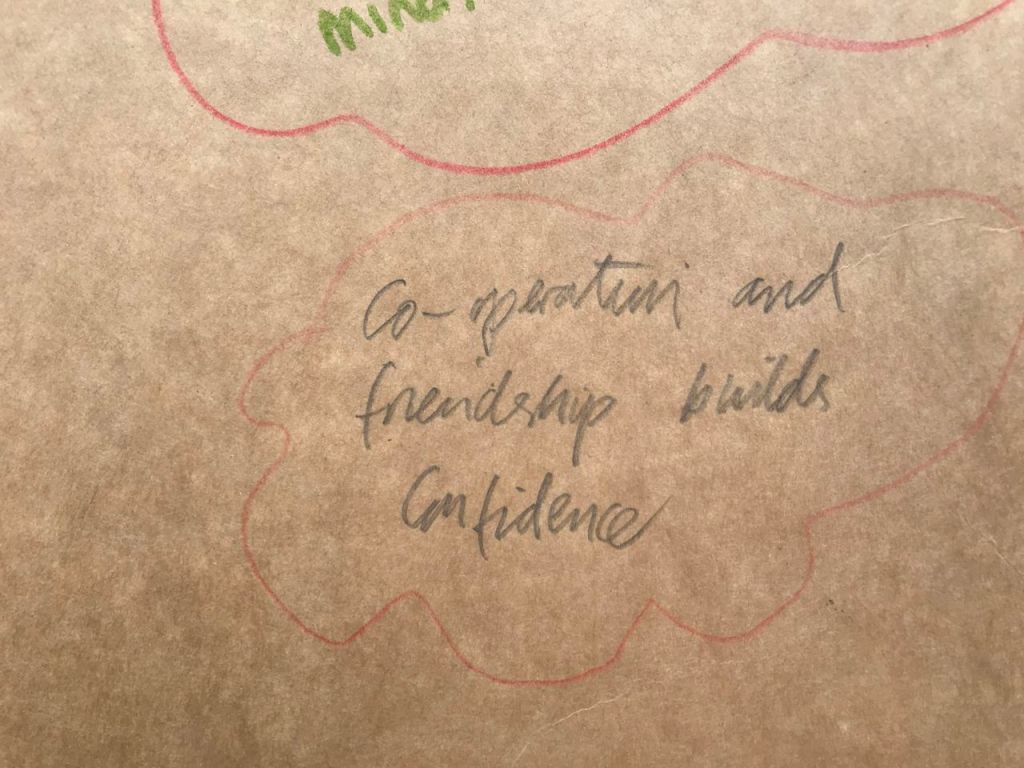 Co-operation and
friendship builds
Confidence